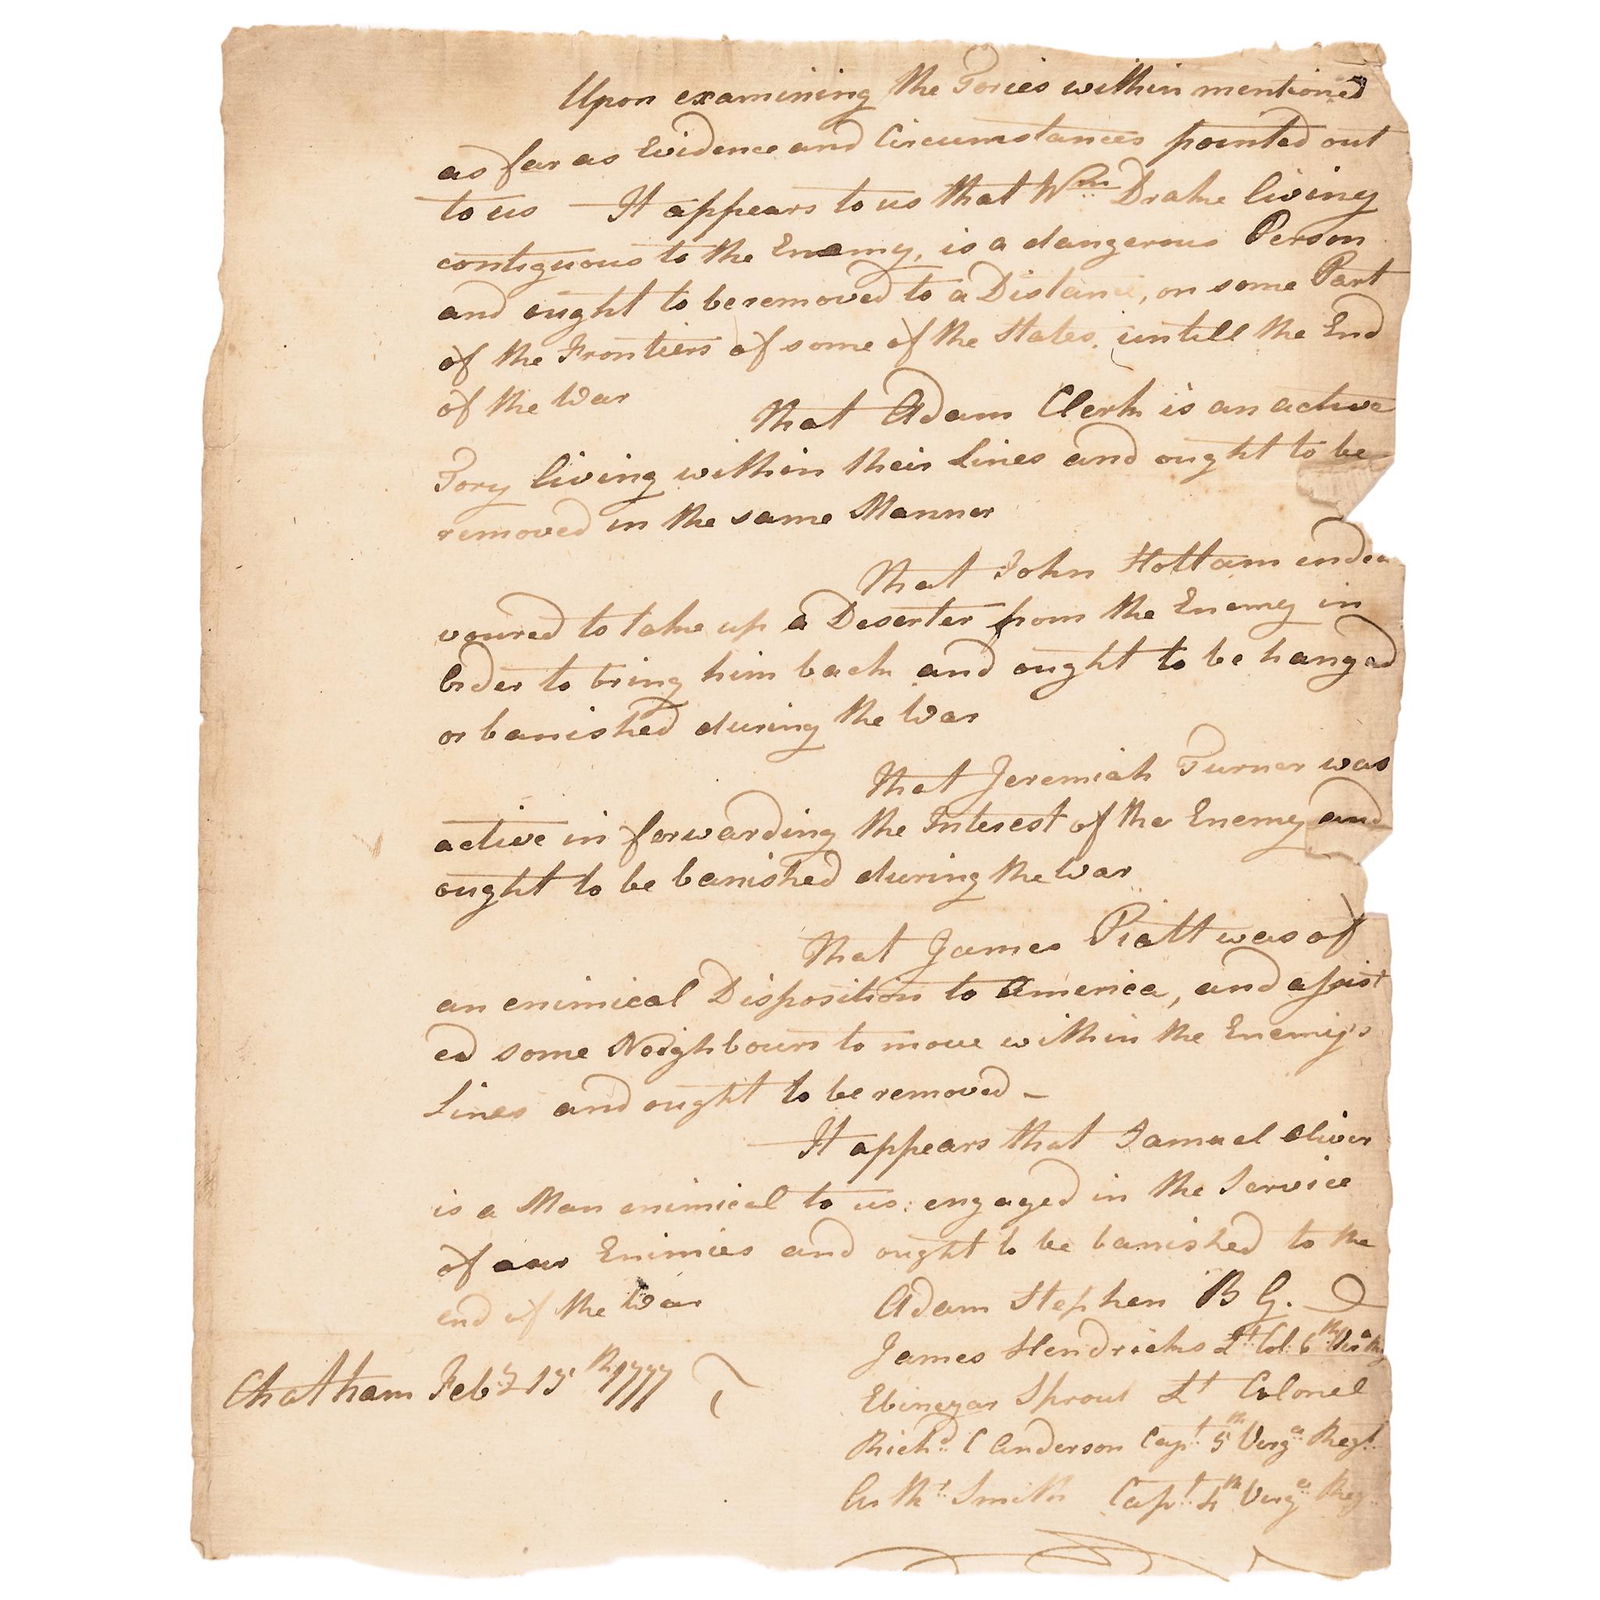 Upon examining the Tories within mentioned
as far as Evidence and Circumstances pointed out
to us It appears to us that Wm Drake living
contiguous to the Enemy, is a dangerous Person
and ought to be removed to a Distance, on some Part
of the Frontiers of some of the States, untill the End
of the War
That Adam Clerk is an active
Tory living within their Lines and ought to be
removed in the same Manner
That John Hottam endea
voured to take up a Deserter from the Enemy in
Order to bring him back and ought to be hanged
or banished during the War
That Jeremiah Turner was
active in forwarding the Interest of the Enemy and
ought to be banished during the War
That James Piatt was of
an enimical Disposition to America, and assist
ed some Neighbours to move within the Enemy's
Lines and ought to be removed –
It appears that Samuel Oliver
is a Man enimical to us: engaged in the Service
of our Enimies and ought to be banished to the
end of the War
Adam Stephen B G.
James Hendricks Lt Col. 6th Via
Chatham Feby 15th 1777
Ebinezar Sprout Lt Colonel
Richd. C Anderson Capt 5th Virga Regt.
Arthr. Smith Capt. 4th Virga Reg